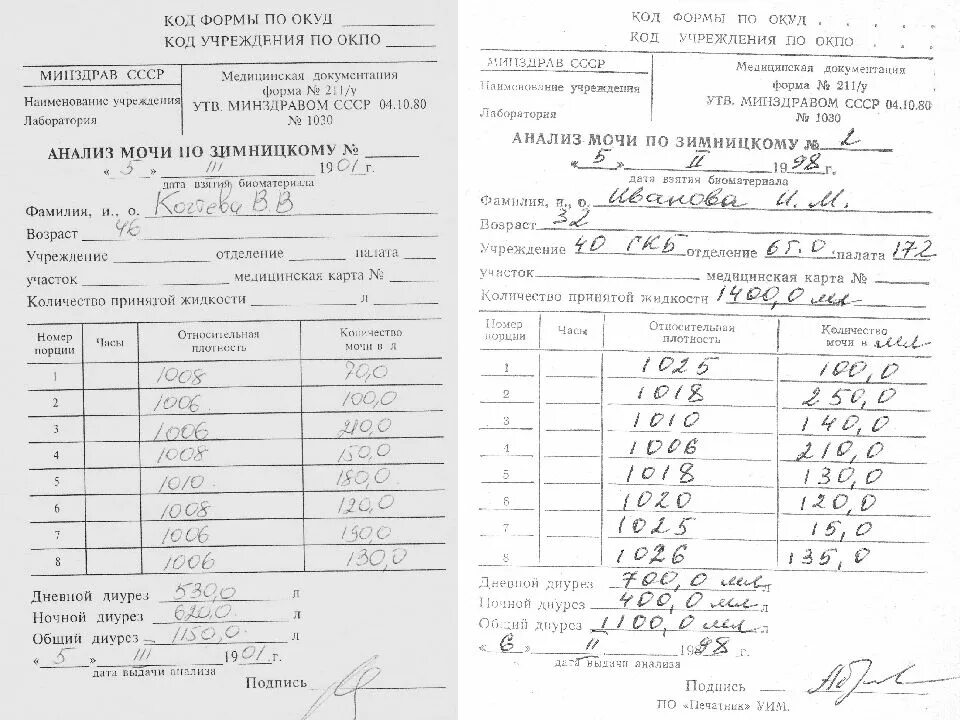 КОД ФОРМЫ ПО ОКУД
КОД УЧРЕЖДЕНИЯ ПО ОКПО
МИНЗДРАВ СССР
Наименование учреждения
Лаборатория
Медицинская документация
форма № 211/у
УТВ. МИНЗДРАВОМ СССР 04.10.80
№ 1030
АНАЛИЗ МОЧИ ПО ЗИМНИЦКОМУ №
« 5 » III 1901 г.
дата взятия биоматериала
Фамилия, и., о. В В
Возраст 46
Учреждение отделение палата
участок медицинская карта №
Количество принятой жидкости л
Номер порции Часы Относительная плотность Количество мочи в л
1 1008 90,0
2 1006 100,0
3 1006 210,0
4 1008 150,0
5 1010 180,0
6 1008 120,0
7 1006 190,0
8 1006 130,0
Дневной диурез 530,0 л
Ночной диурез 620,0 л
Общий диурез 1150,0 л
« 5 » III 1901 г.
дата выдачи анализа
Подпись
КОД ФОРМЫ ПО ОКУД
КОД УЧРЕЖДЕНИЯ ПО ОКПО
МИНЗДРАВ СССР
Наименование учреждения
Лаборатория
Медицинская документация
форма № 211/у
УТВ. МИНЗДРАВОМ СССР 04.10.80
№ 1030
АНАЛИЗ МОЧИ ПО ЗИМНИЦКОМУ № 2
« 5 » II 1998 г.
дата взятия биоматериала
Фамилия, и., о. Иванова И. М.
Возраст 32
Учреждение 40 ГКБ отделение 6 г.о палата 172
участок медицинская карта №
Количество принятой жидкости 1400,0 мл
Номер порции Часы Относительная плотность Количество мочи в мл
1 1025 100,0
2 1018 250,0
3 1010 140,0
4 1006 210,0
5 1018 130,0
6 1020 120,0
7 1025 15,0
8 1026 135,0
Дневной диурез 700,0 мл л
Ночной диурез 400,0 мл л
Общий диурез 1100,0 мл л
« 6 » II 1998 г.
дата выдачи анализа
Подпись
ПО «Печатник» УИМ.